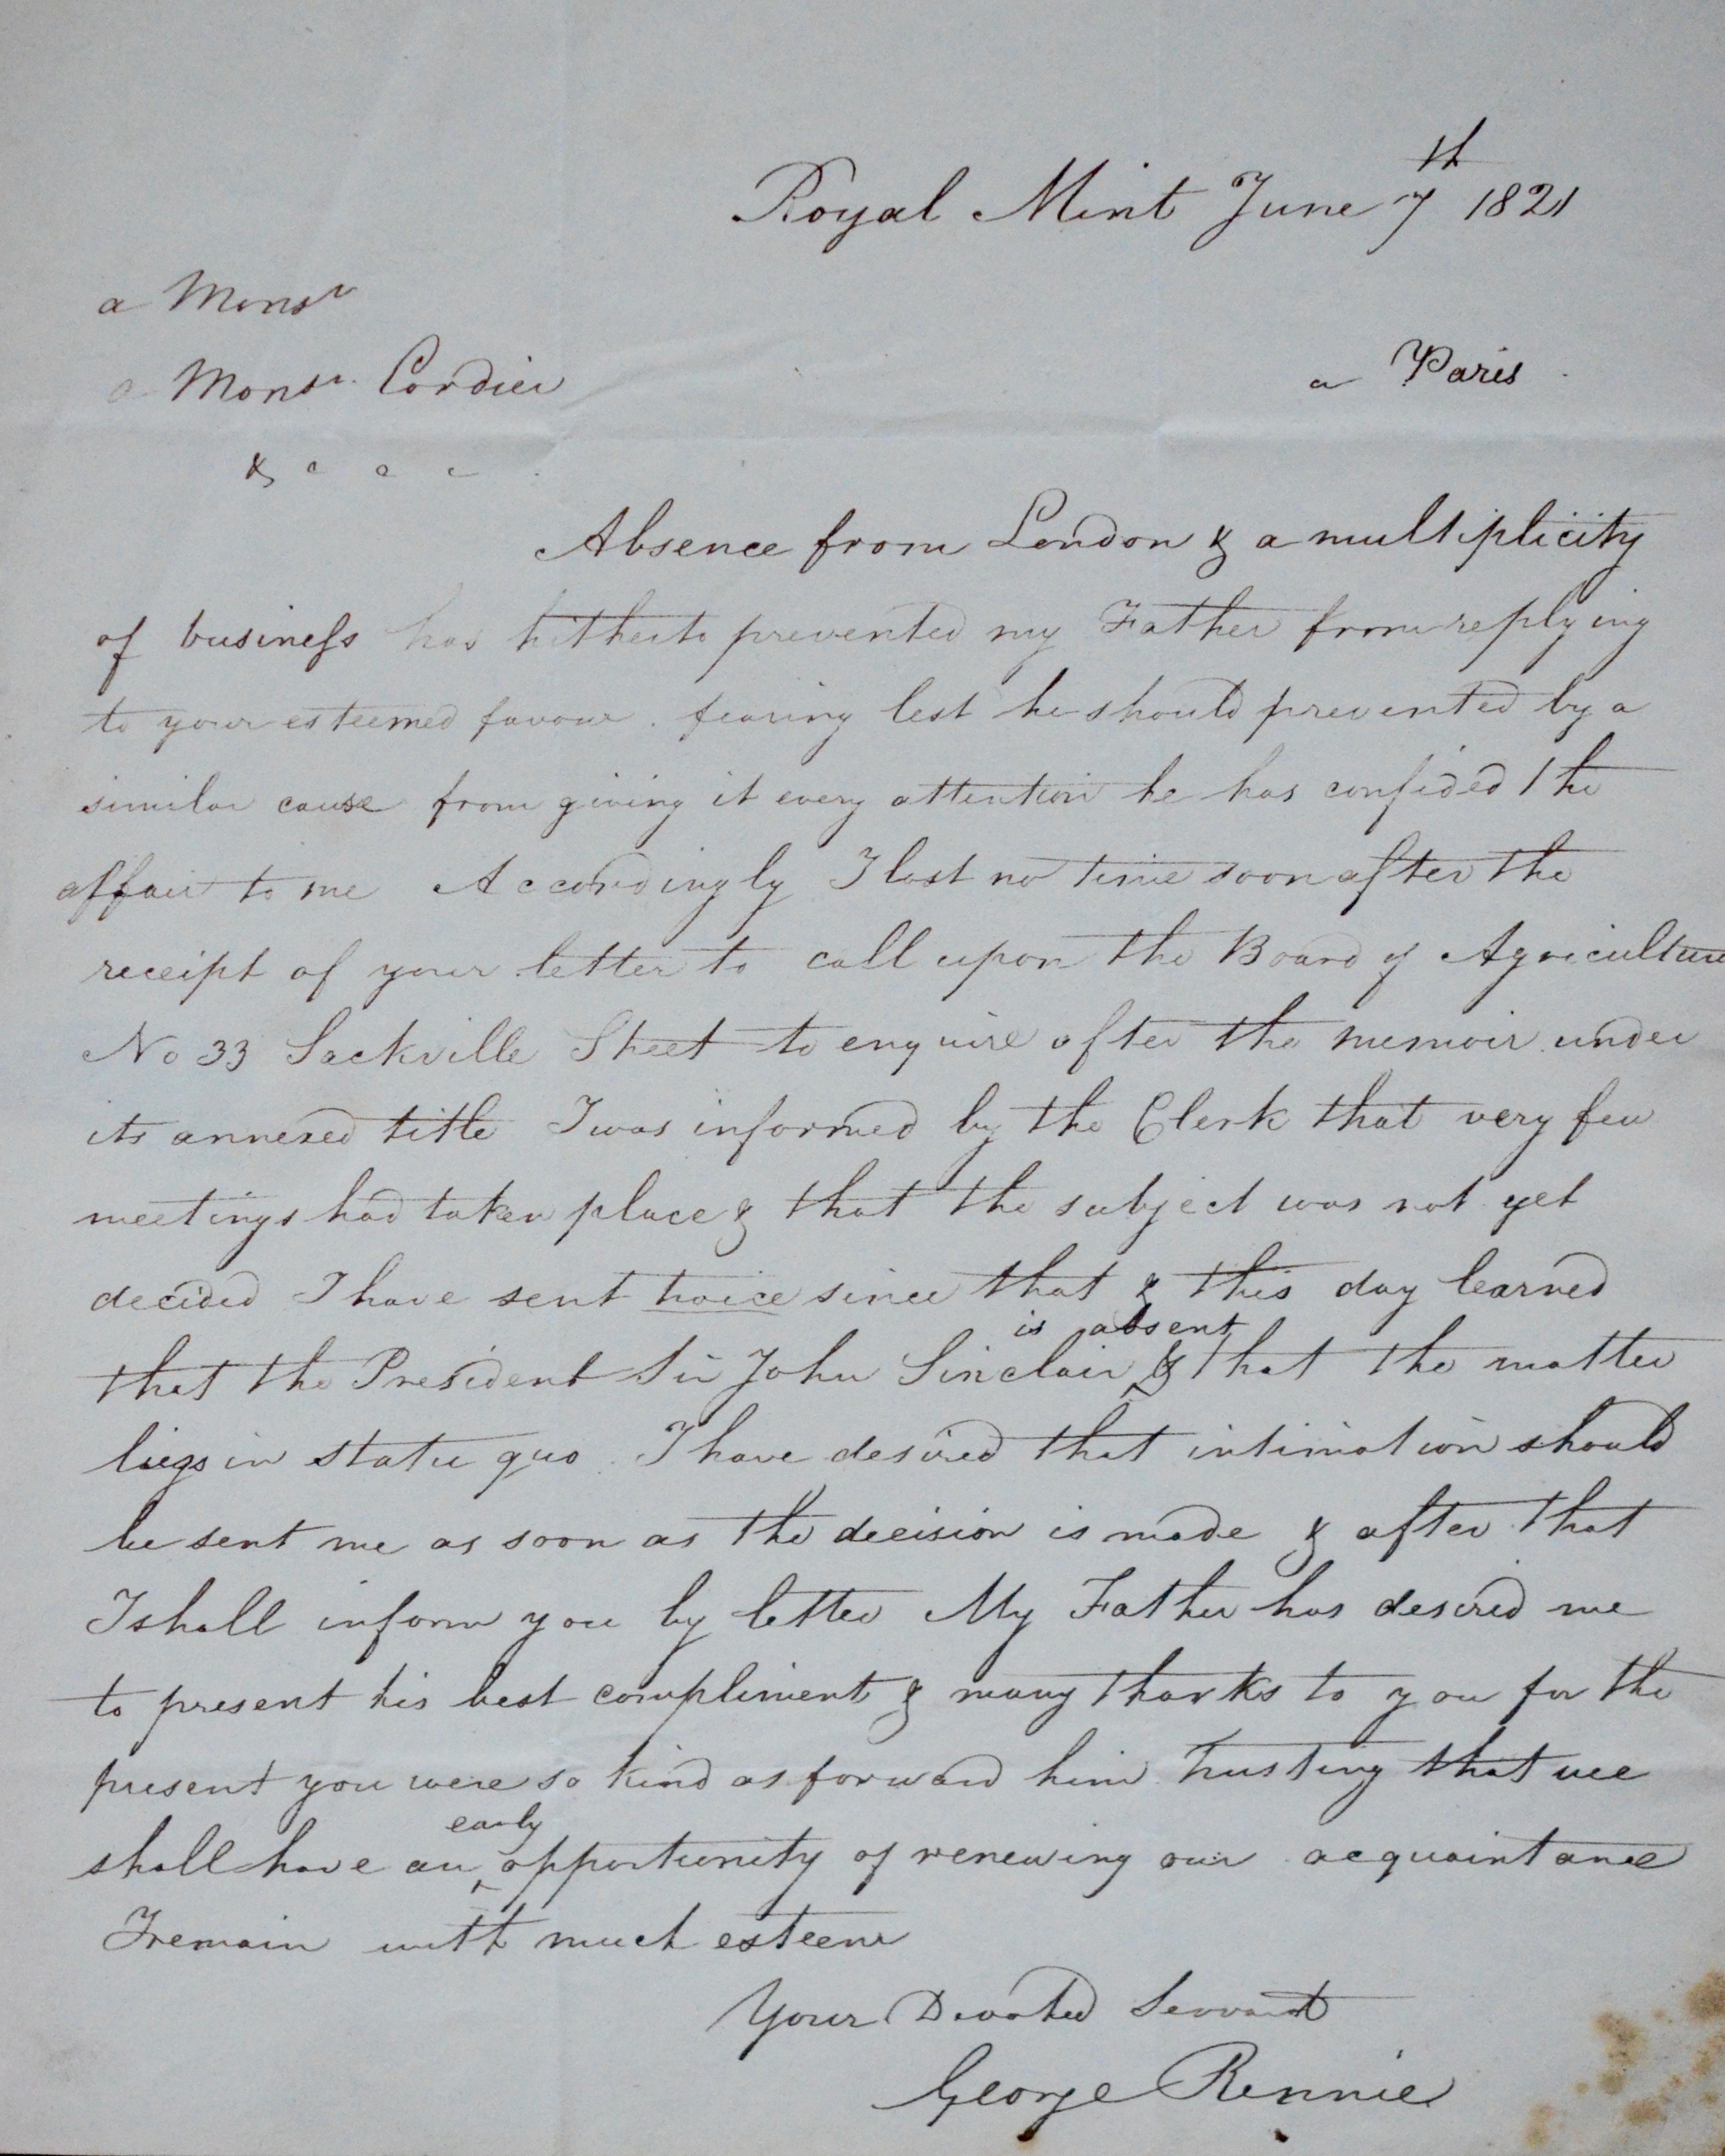 Royal Mint June 7th 1821
a Monsr
a Monsr. Cordier
a Paris
& c c c
Absence from London & a multiplicity
of business has hitherto prevented my Father from replying
to your esteemed favour. fearing lest he should prevented by a
similar cause from giving it every attention he has confided the
affair to me Accordingly I lost no time soon after the
receipt of your letter to call upon the Board of Agriculture
No 33 Sackville Street to enquire after the memoir under
its annexed title I was informed by the Clerk that very few
meetings had taken place & that the subject was not yet
decided I have sent twice since that & this day learned
that the President Sir John Sinclair is absent & that the matter
lies in statu quo. I have desired that intimation should
be sent me as soon as the decision is made & after that
I shall inform you by letter My Father has desired me
to present his best compliment & many thanks to you for the
present you were so kind as forward him. Trusting that we
shall have an early opportunity of renewing our acquaintance
I remain with much esteem
Your Devoted Servant
George Rennie